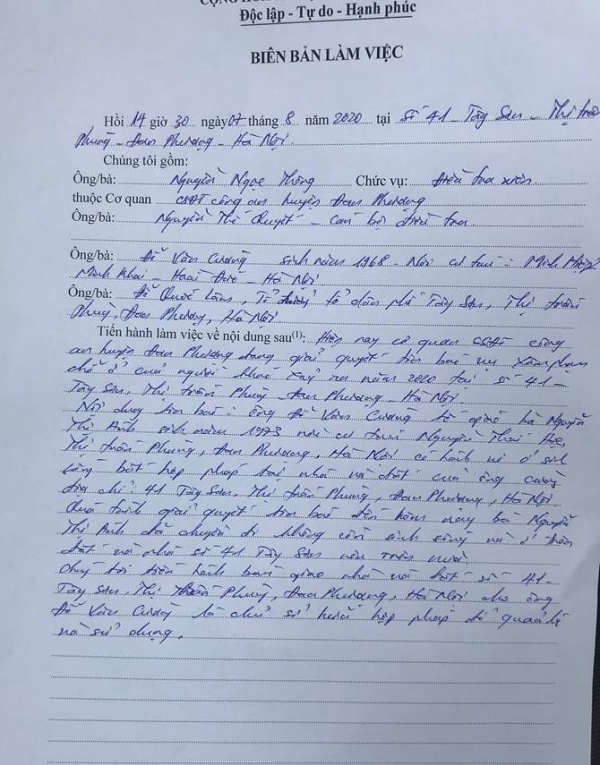 Độc lập - Tự do - Hạnh phúc
BIÊN BẢN LÀM VIỆC
Hồi 14 giờ 30 ngày 07 tháng 8 năm 2020 tại Số 41 - Tây Sơn - Thị trấn
Phùng - Đan Phượng - Hà Nội.
Chúng tôi gồm:
Ông/bà: Nguyễn Ngọc Thông Chức vụ: Điều tra viên
thuộc Cơ quan CSĐT công an huyện Đan Phượng
Ông/bà: Nguyễn Thế Quyết - Cán bộ điều tra.
Ông/bà: Đỗ Văn Cường sinh năm 1968 - Nơi cư trú:
Minh Khai - Hoài Đức - Hà Nội
Ông/bà: Đỗ Quốc Lâm, Tổ trưởng tổ dân phố Tây Sơn, Thị trấn
Phùng, Đan Phượng, Hà Nội
Tiến hành làm việc về nội dung sau(1): Hiện nay cơ quan CSĐT công
an huyện Đan Phượng đang giải quyết tin báo vụ Xâm phạm
chỗ ở của người khác xảy ra năm 2020 tại số 41 -
Tây Sơn, Thị trấn Phùng - Đan Phượng - Hà Nội.
Nội dung tin báo: ông Đỗ Văn Cường tố giác bà Nguyễn
Thị Anh sinh năm 1973 nơi cư trú Nguyễn Thái Học,
Thị trấn Phùng, Đan Phượng, Hà Nội có hành vi ở sinh
sống bất hợp pháp tại nhà và đất của ông Cường
địa chỉ: 41 Tây Sơn, Thị trấn Phùng, Đan Phượng, Hà Nội
Quá trình giải quyết tin báo đến hôm nay bà Nguyễn
Thị Anh đã chuyển đi không còn sinh sống và ở trên
đất và nhà số 41 Tây Sơn nêu trên nữa.
Chúng tôi tiến hành bàn giao nhà và đất số 41 -
Tây Sơn, Thị trấn Phùng, Đan Phượng, Hà Nội cho ông
Đỗ Văn Cường là chủ sở hữu hợp pháp để quản lý
và sử dụng.